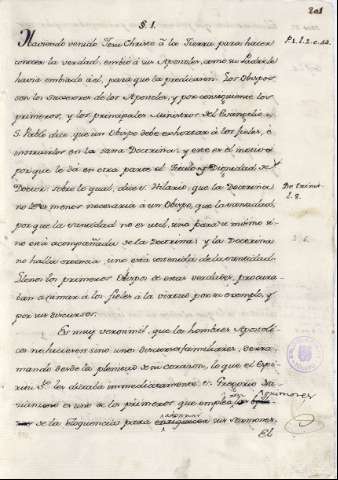 201
§. 1.
Haviendo venido Jesu Christo à la Tierra para hacer
conocer la verdad, embió à sus Apostoles, como su Padre le
havia embiado à el, para que la predicasen. Los Obispos
son los sucesores de los Apostoles, y por consiguiente los
primeros, y los principales Ministros del Evangelio.
S. Pablo dice que un Obispo debe exhortar à los fieles, è
instruirlos en la sana Doctrina; y este es el motivo
porque le dà en otra parte el Titulo y Dignidad de
Doctor: sobre lo qual, dice S. Hilario, que la Doctrina
no es menos necesaria à un Obispo, que la santidad,
porque la santidad no es util, sino para si mismo si
no està acompañada de la Doctrina; y la Doctrina
no halla si no està sostenida de la santidad.
Llenos los primeros Obispos de estas verdades, procura-
ban animar à los fieles à la virtud por su exemplo, y
por sus discursos.
Es muy verosimil, que los hombres Apostoli-
cos no hiciesen sino unos discursos familiares, derra-
mando desde la plenitud de su corazon, lo que el Espi-
ritu Sto. les dictaba immediatamente. S. Gregorio Na-
cianzeno es uno de los primeros que empleó
de la Eloquencia para sus sermones.
El
De Trinit.
l. 8.